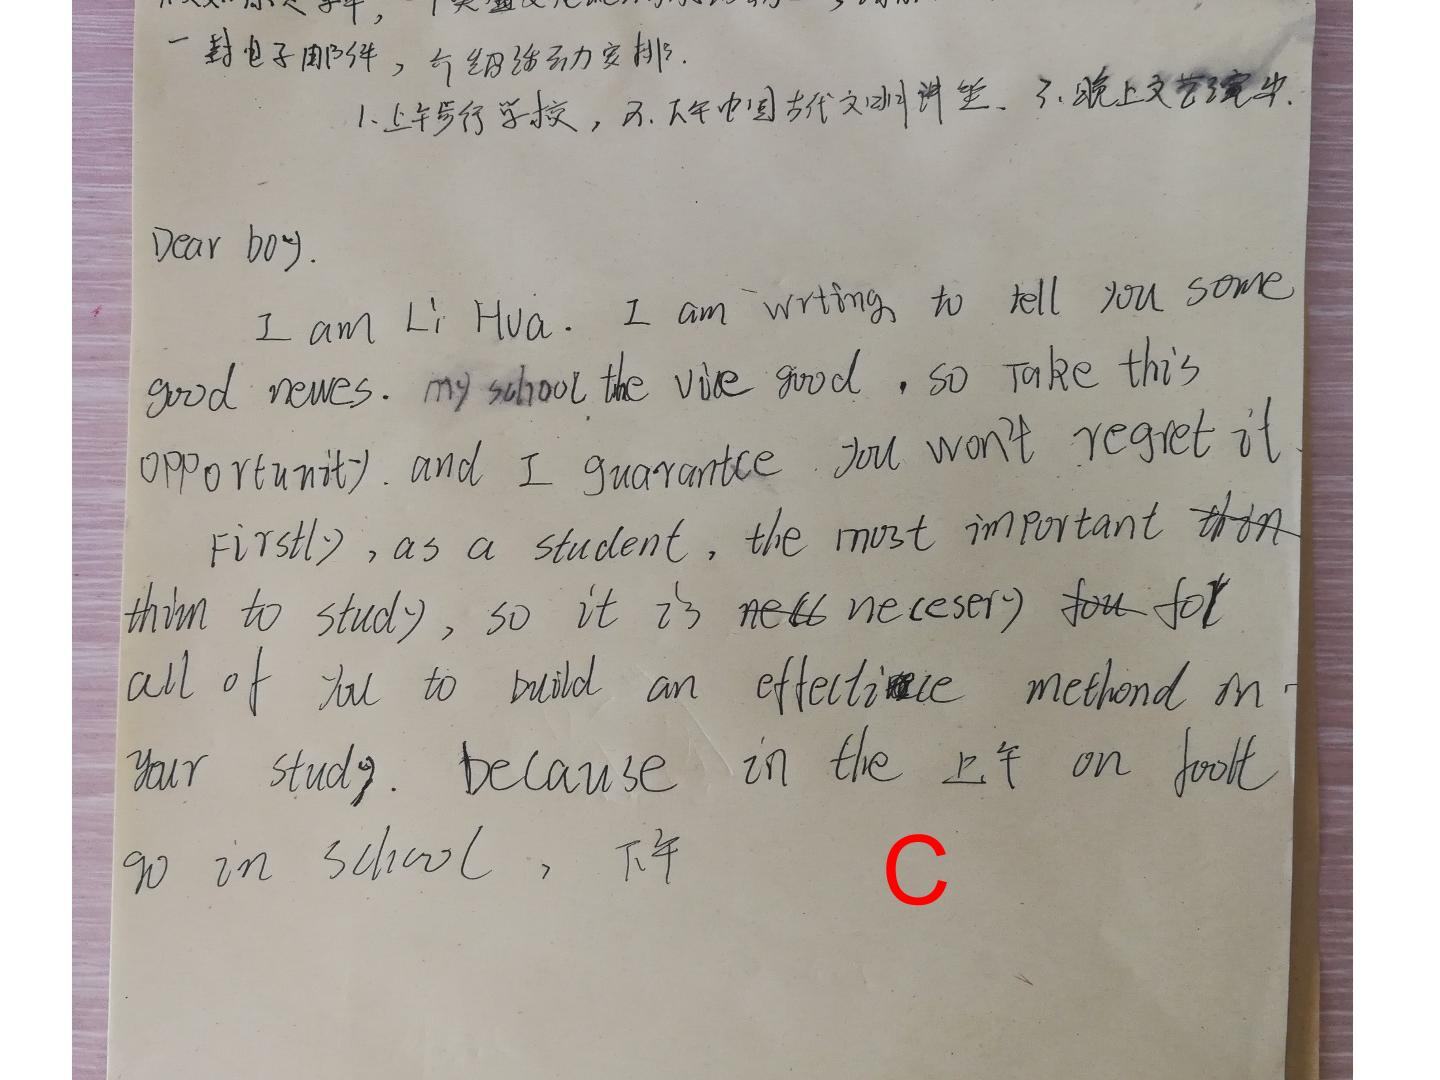 一封电子邮件，介绍活动安排.
1.上午步行学校，2.下午中国古代文明讲坐、3.晚上文艺演出.
Dear boy.
I am Li Hua. I am wrting to tell you some
good newes. my school the vice good , so Take this
opportunity. and I guarantce you won't regret it.
Firstly, as a student, the most important thin
thim to study, so it is necc necesery fou for
all of you to build an effective methond in
your study. because in the 上午 on foolt
go in school , 下午
C